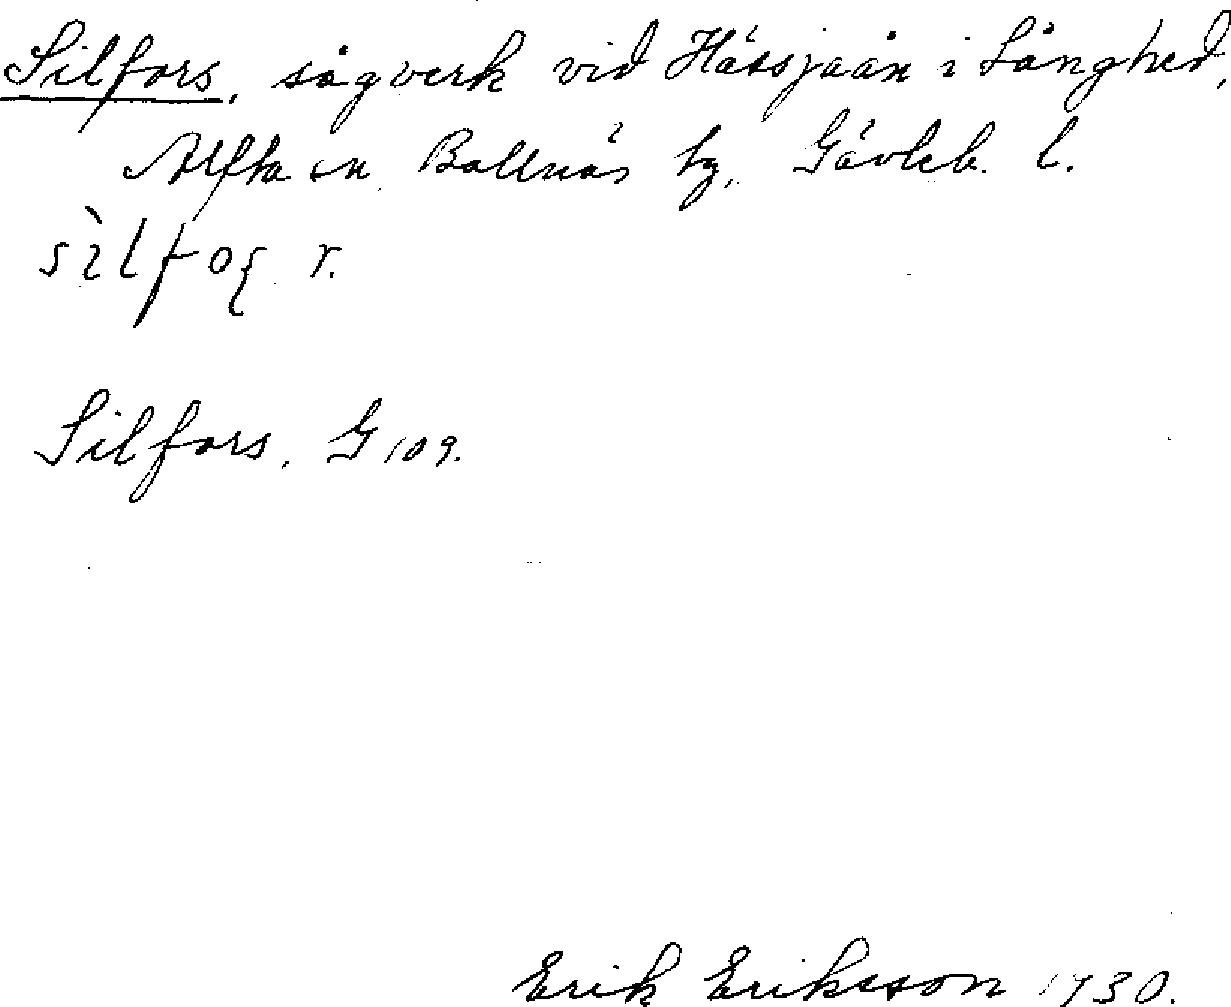 Silfors, sågverk vid Hässjaån i Långhed,
Alfta sn Bollnäs tg, Gävleb. l.
sìlfoʂ r.
Silfors, G 109.
Erik Eriksson 1930.